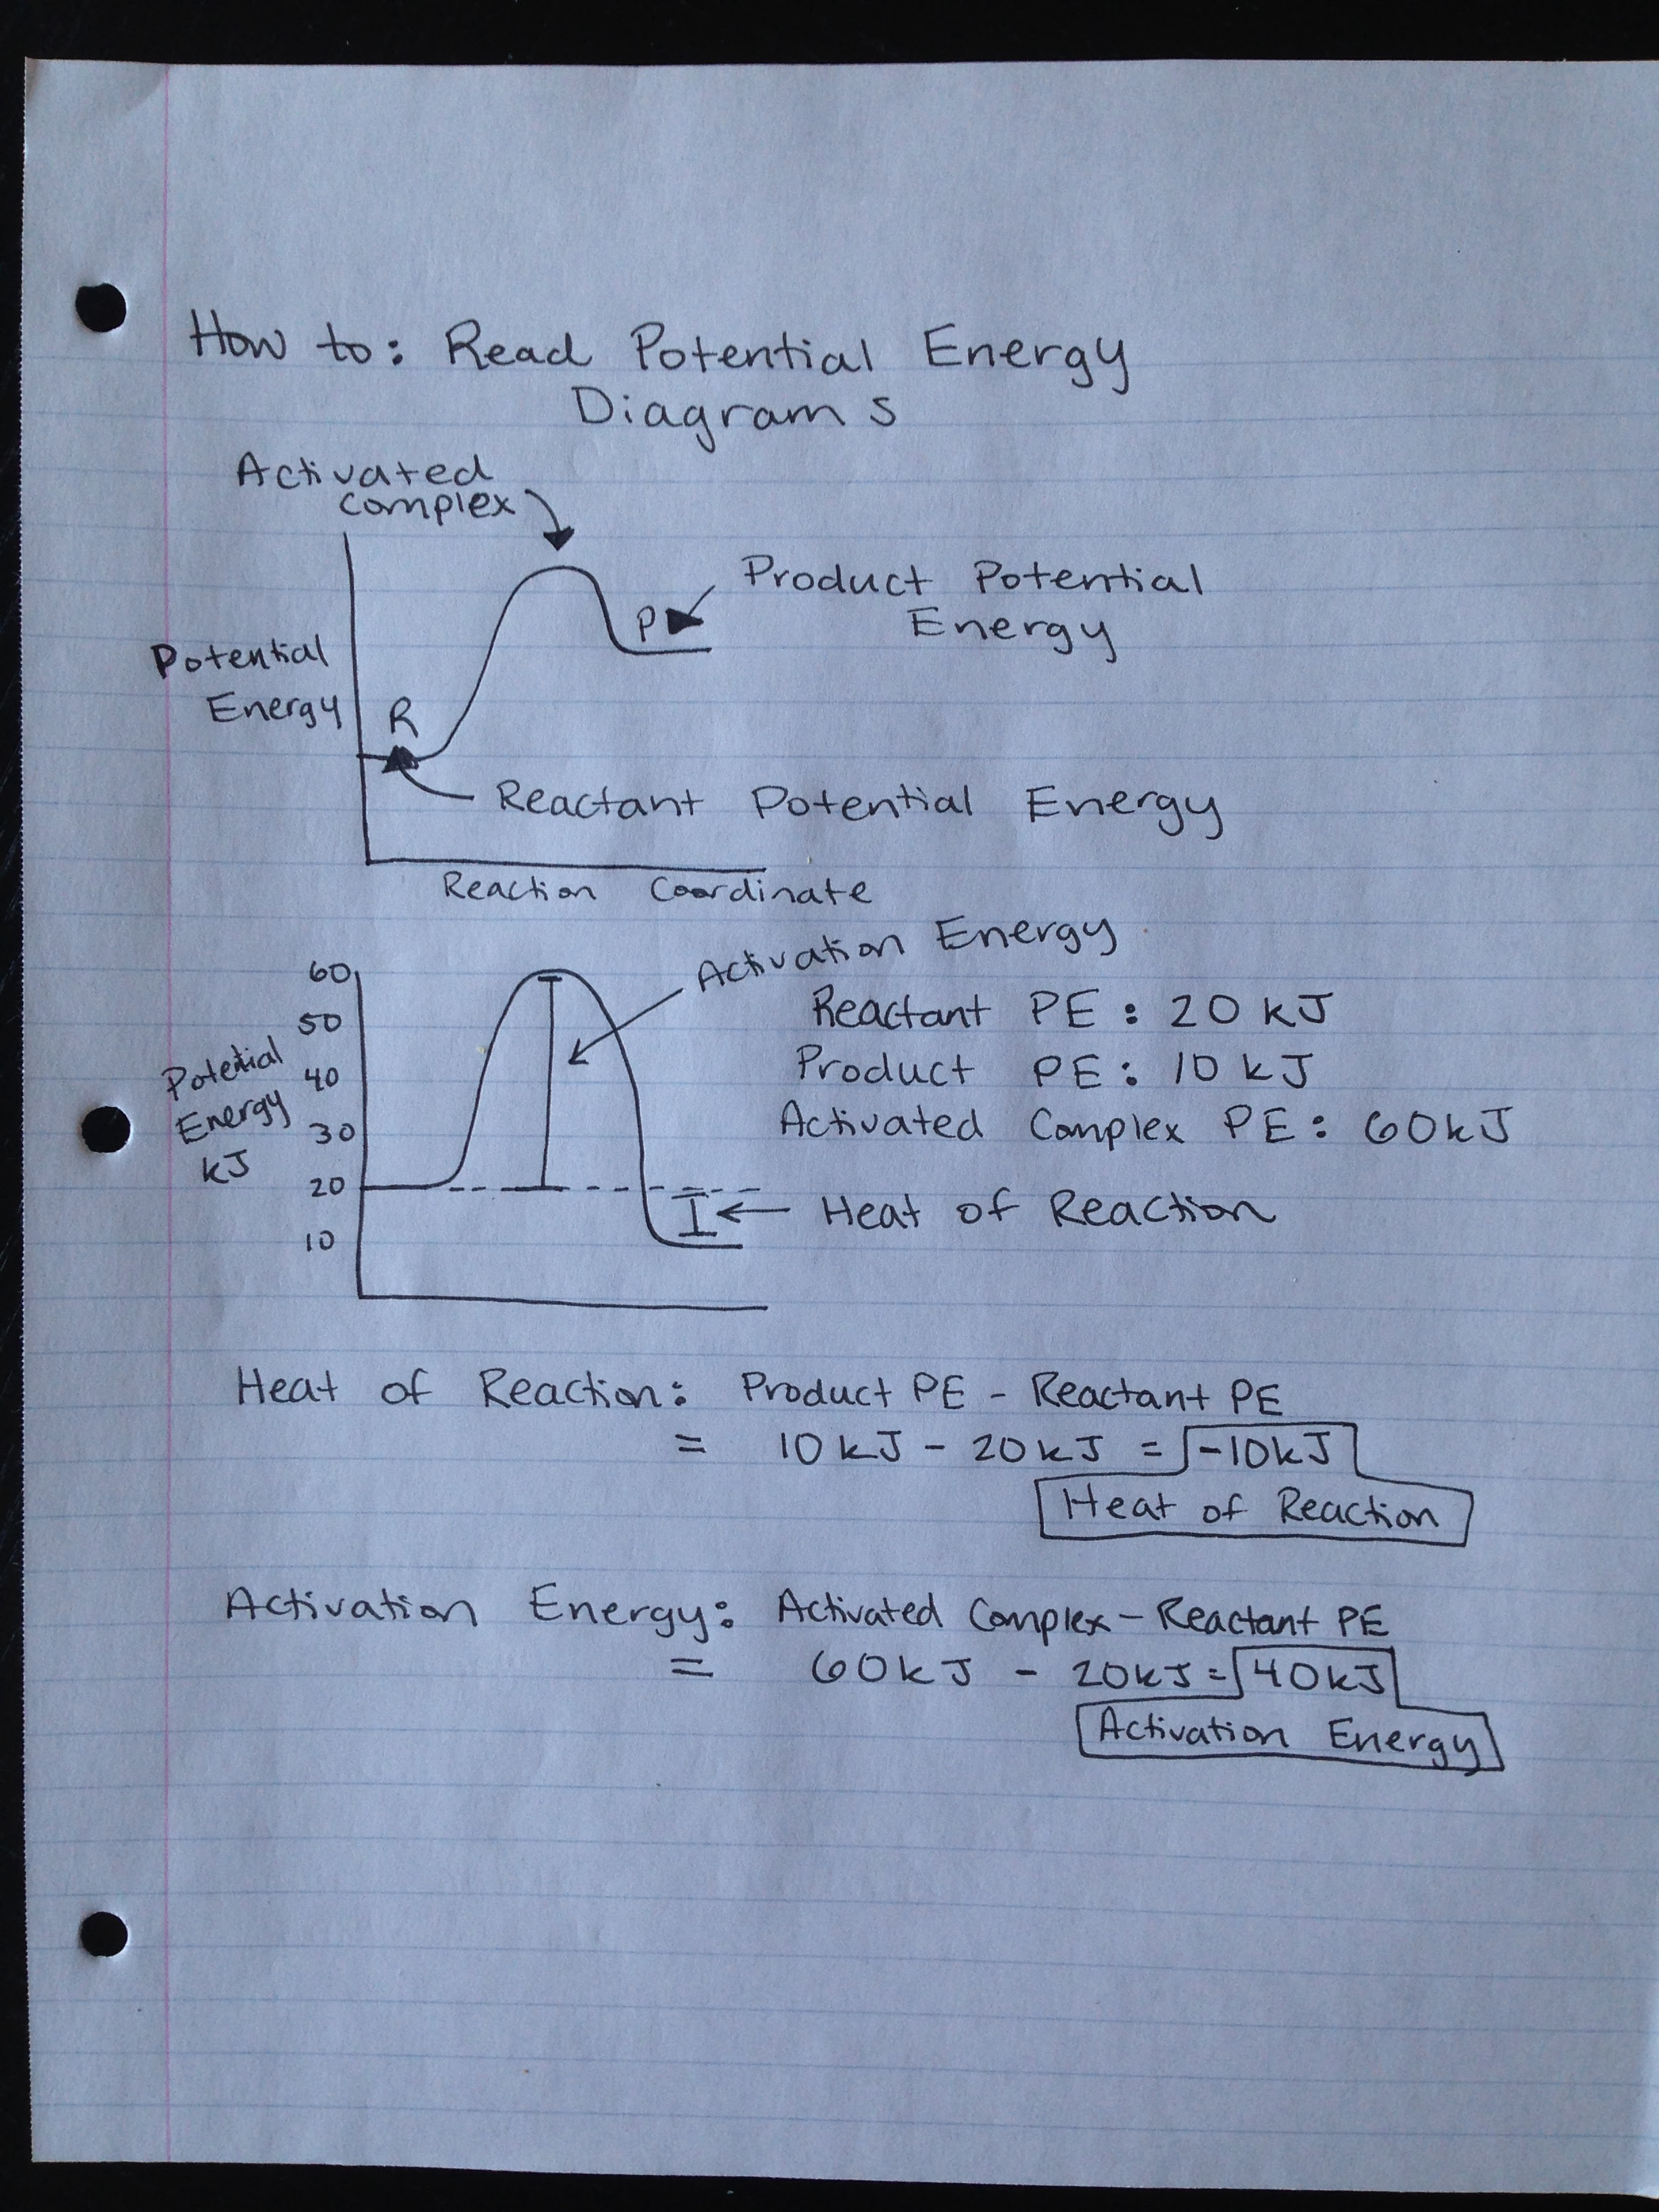 How to: Read Potential Energy
Diagrams
Activated
Complex
Product Potential
Energy
P
Potential
Energy
R
Reactant Potential Energy
Reaction Coordinate
Activation Energy
60
50
40
30
20
10
Potential
Energy
kJ
Reactant PE: 20 kJ
Product PE: 10 kJ
Activated Complex PE: 60kJ
Heat of Reaction
Heat of Reaction: Product PE - Reactant PE
= 10 kJ - 20 kJ = -10kJ
Heat of Reaction
Activation Energy: Activated Complex - Reactant PE
= 60kJ - 20kJ = 40kJ
Activation Energy